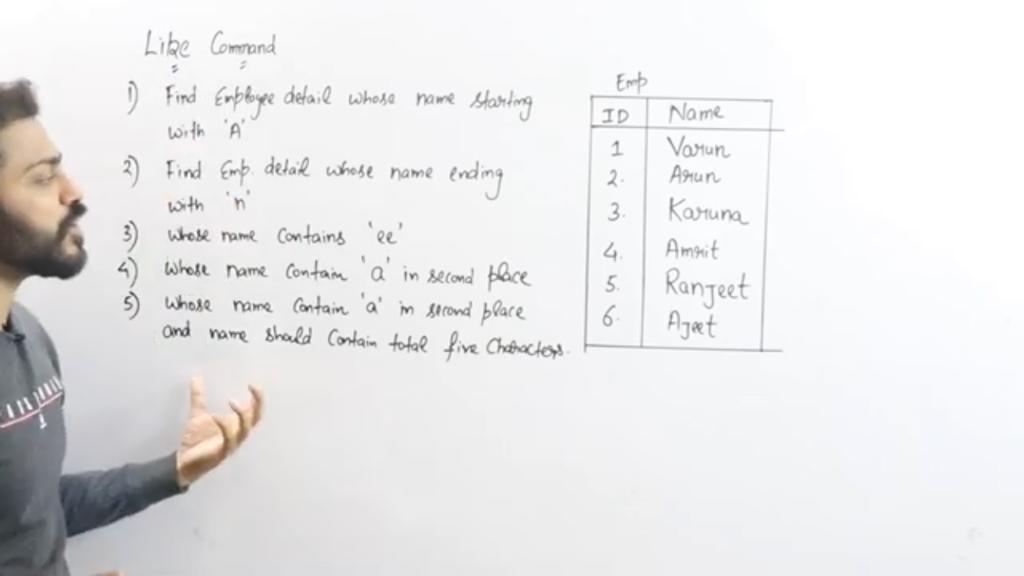 Like Command
1) Find Employee detail whose name starting
with 'A'
2) Find Emp. detail whose name ending
with 'n'
3) Whose name Contains 'ee'
4) Whose name Contain 'a' in second place
5) Whose name Contain 'a' in second place
and name should Contain total five Characters.
Emp
ID Name
1 Varun
2. Arun
3. Karuna
4. Amrit
5. Ranjeet
6. Ajeet